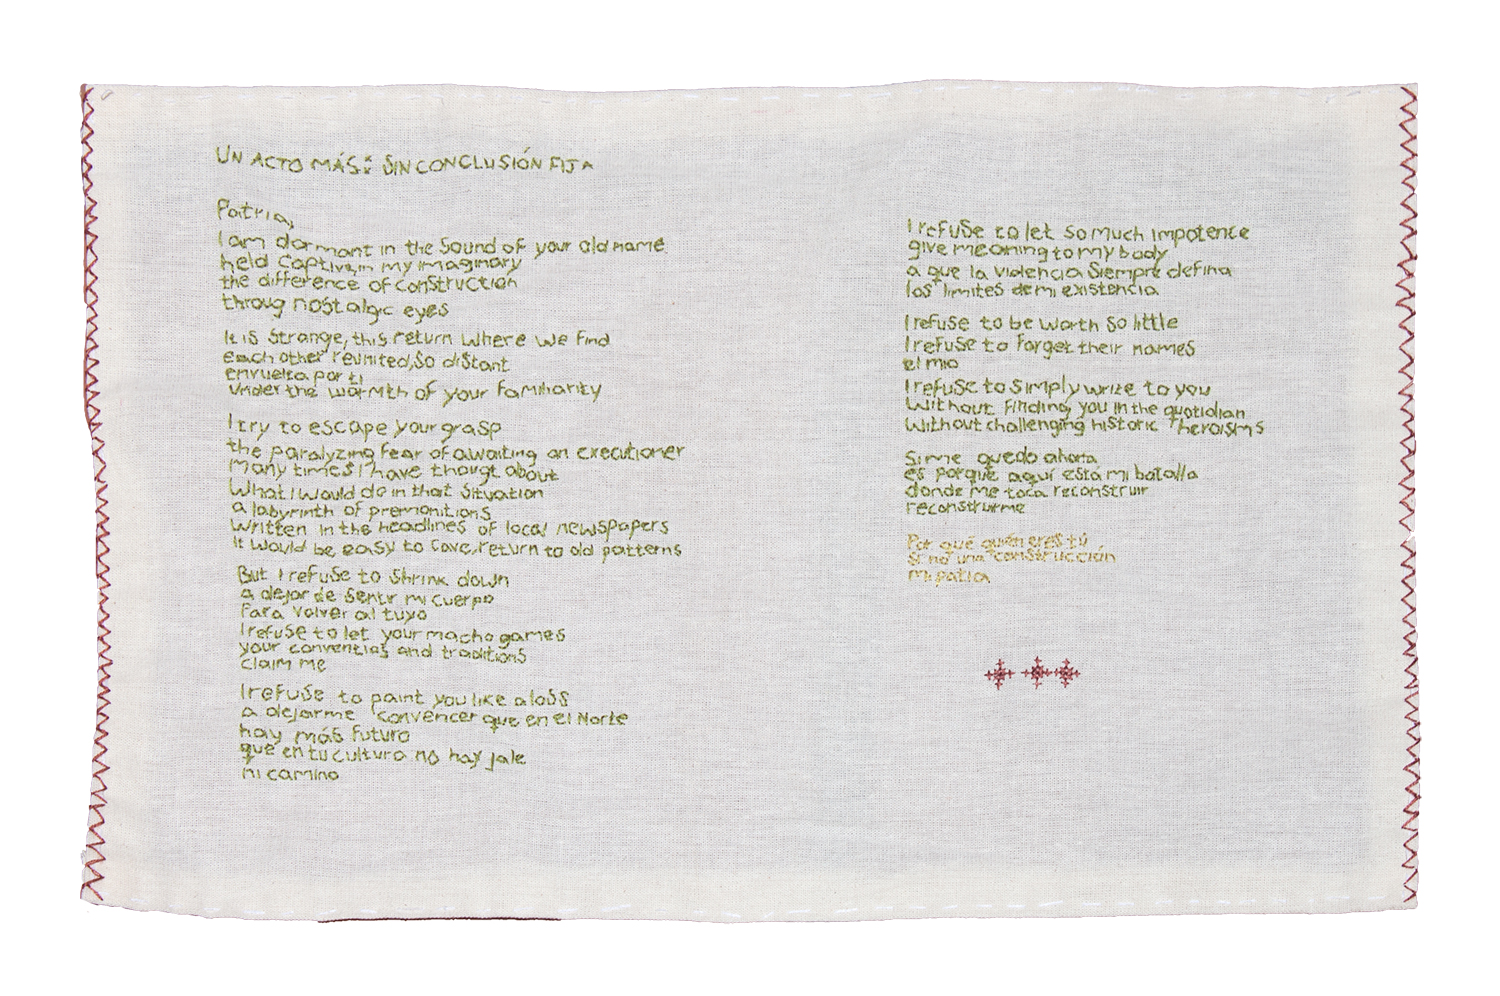 UN ACTO MÁS: SIN CONCLUSIÓN FIJA
Patria,
I am dormant in the sound of your old name
held captive in my imaginary
the difference of construction
throug nostalgic eyes
It is strange, this return where we find
each other reunited, so distant
envuelta por ti
under the warmth of your familiarity
I try to escape your grasp
the paralyzing fear of awaiting an executioner
Many times I have thougt about
What I would do in that situation
a labyrinth of premonitions
written in the headlines of local newspapers
It would be easy to cave, return to old patterns
But I refuse to shrink down
a dejar de sentir mi cuerpo
Para volver al tuyo
I refuse to let your macho games
your and traditions
claim me
I refuse to paint you like a loss
a dejarme convencer que en el Norte
hay más futuro
que en tu cultura no hay jale
ni camino
I refuse to let so much impotence
give meaning to my body
a que la violencia siempre defina
los limites de mi existencia
I refuse to be worth so little
I refuse to forget their names
el mio
I refuse to simply write to you
Without finding you in the quotidian
Without challenging historic heroisms
Si me quedo ahora
es porque aquí está mi batalla
donde me toca reconstruir
reconstruirme
Por qué quién eres tú
si no una construcción
mi patria